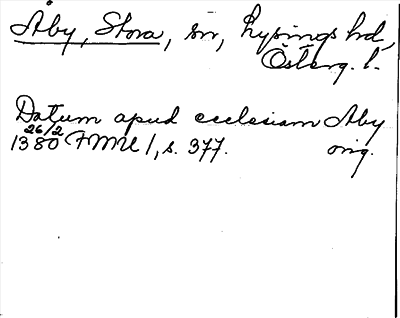 Åby, Stora, sn, Lysings hd,
Österg. l.
Datum apud ecclesiam Aby
1380 26/2 FMU 1, s. 377. orig.